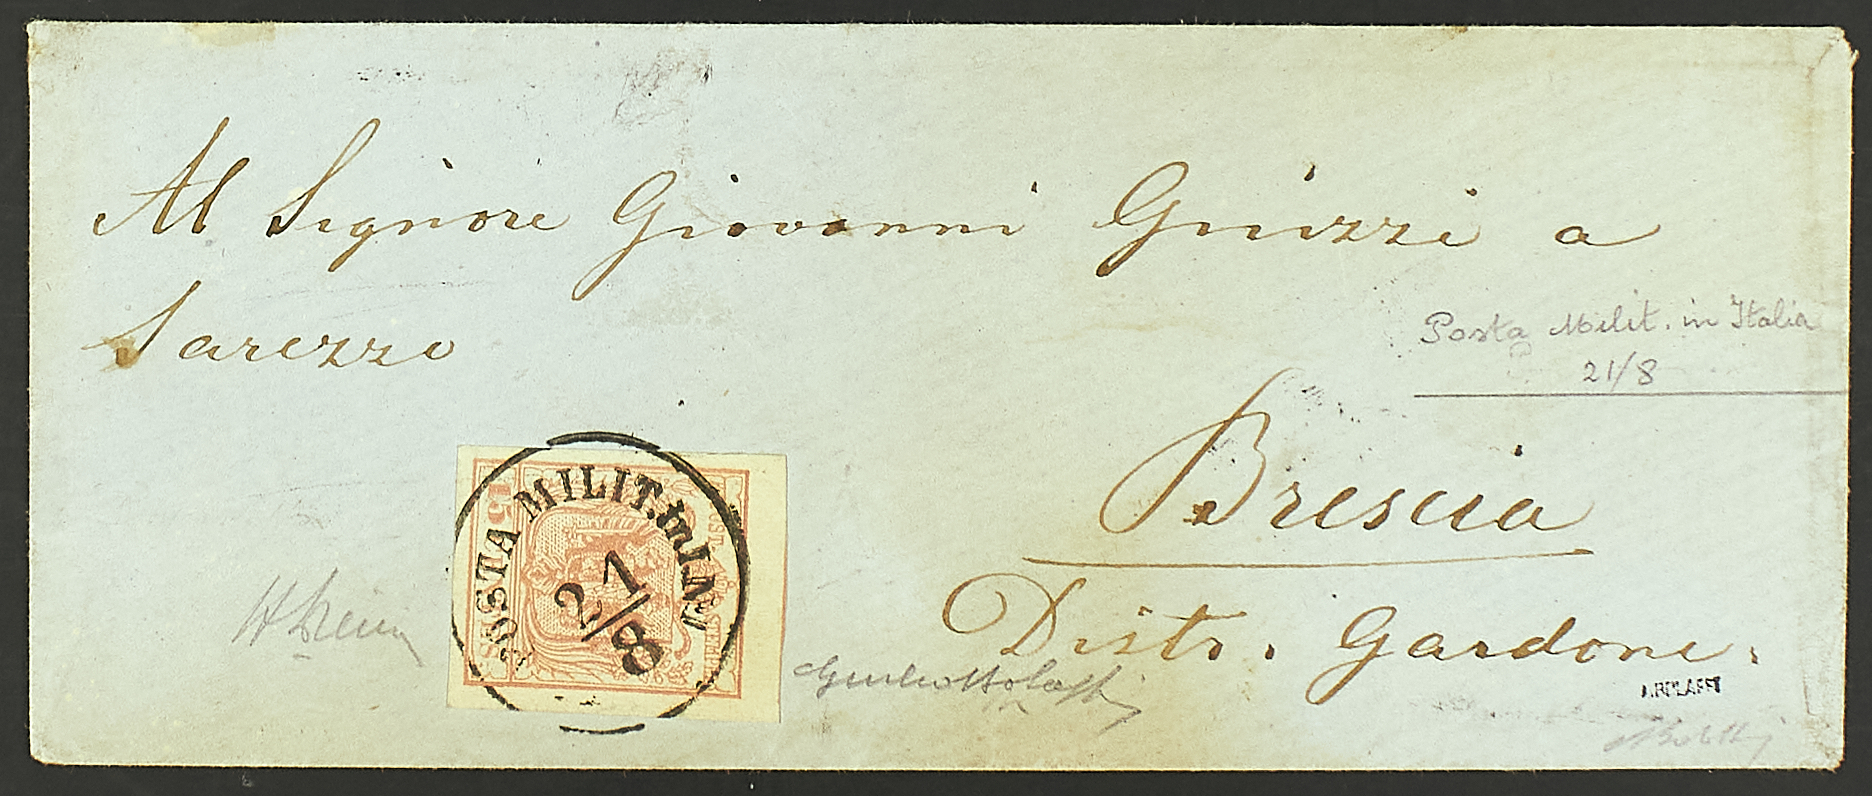 Al Signore Giovanni Guizzi a
Sarezzo
Posta Milit. in Italia
21/8
Brescia
Distr. Gardone.
15
POSTA MILIT. in
21/8
A.BOLAFFI